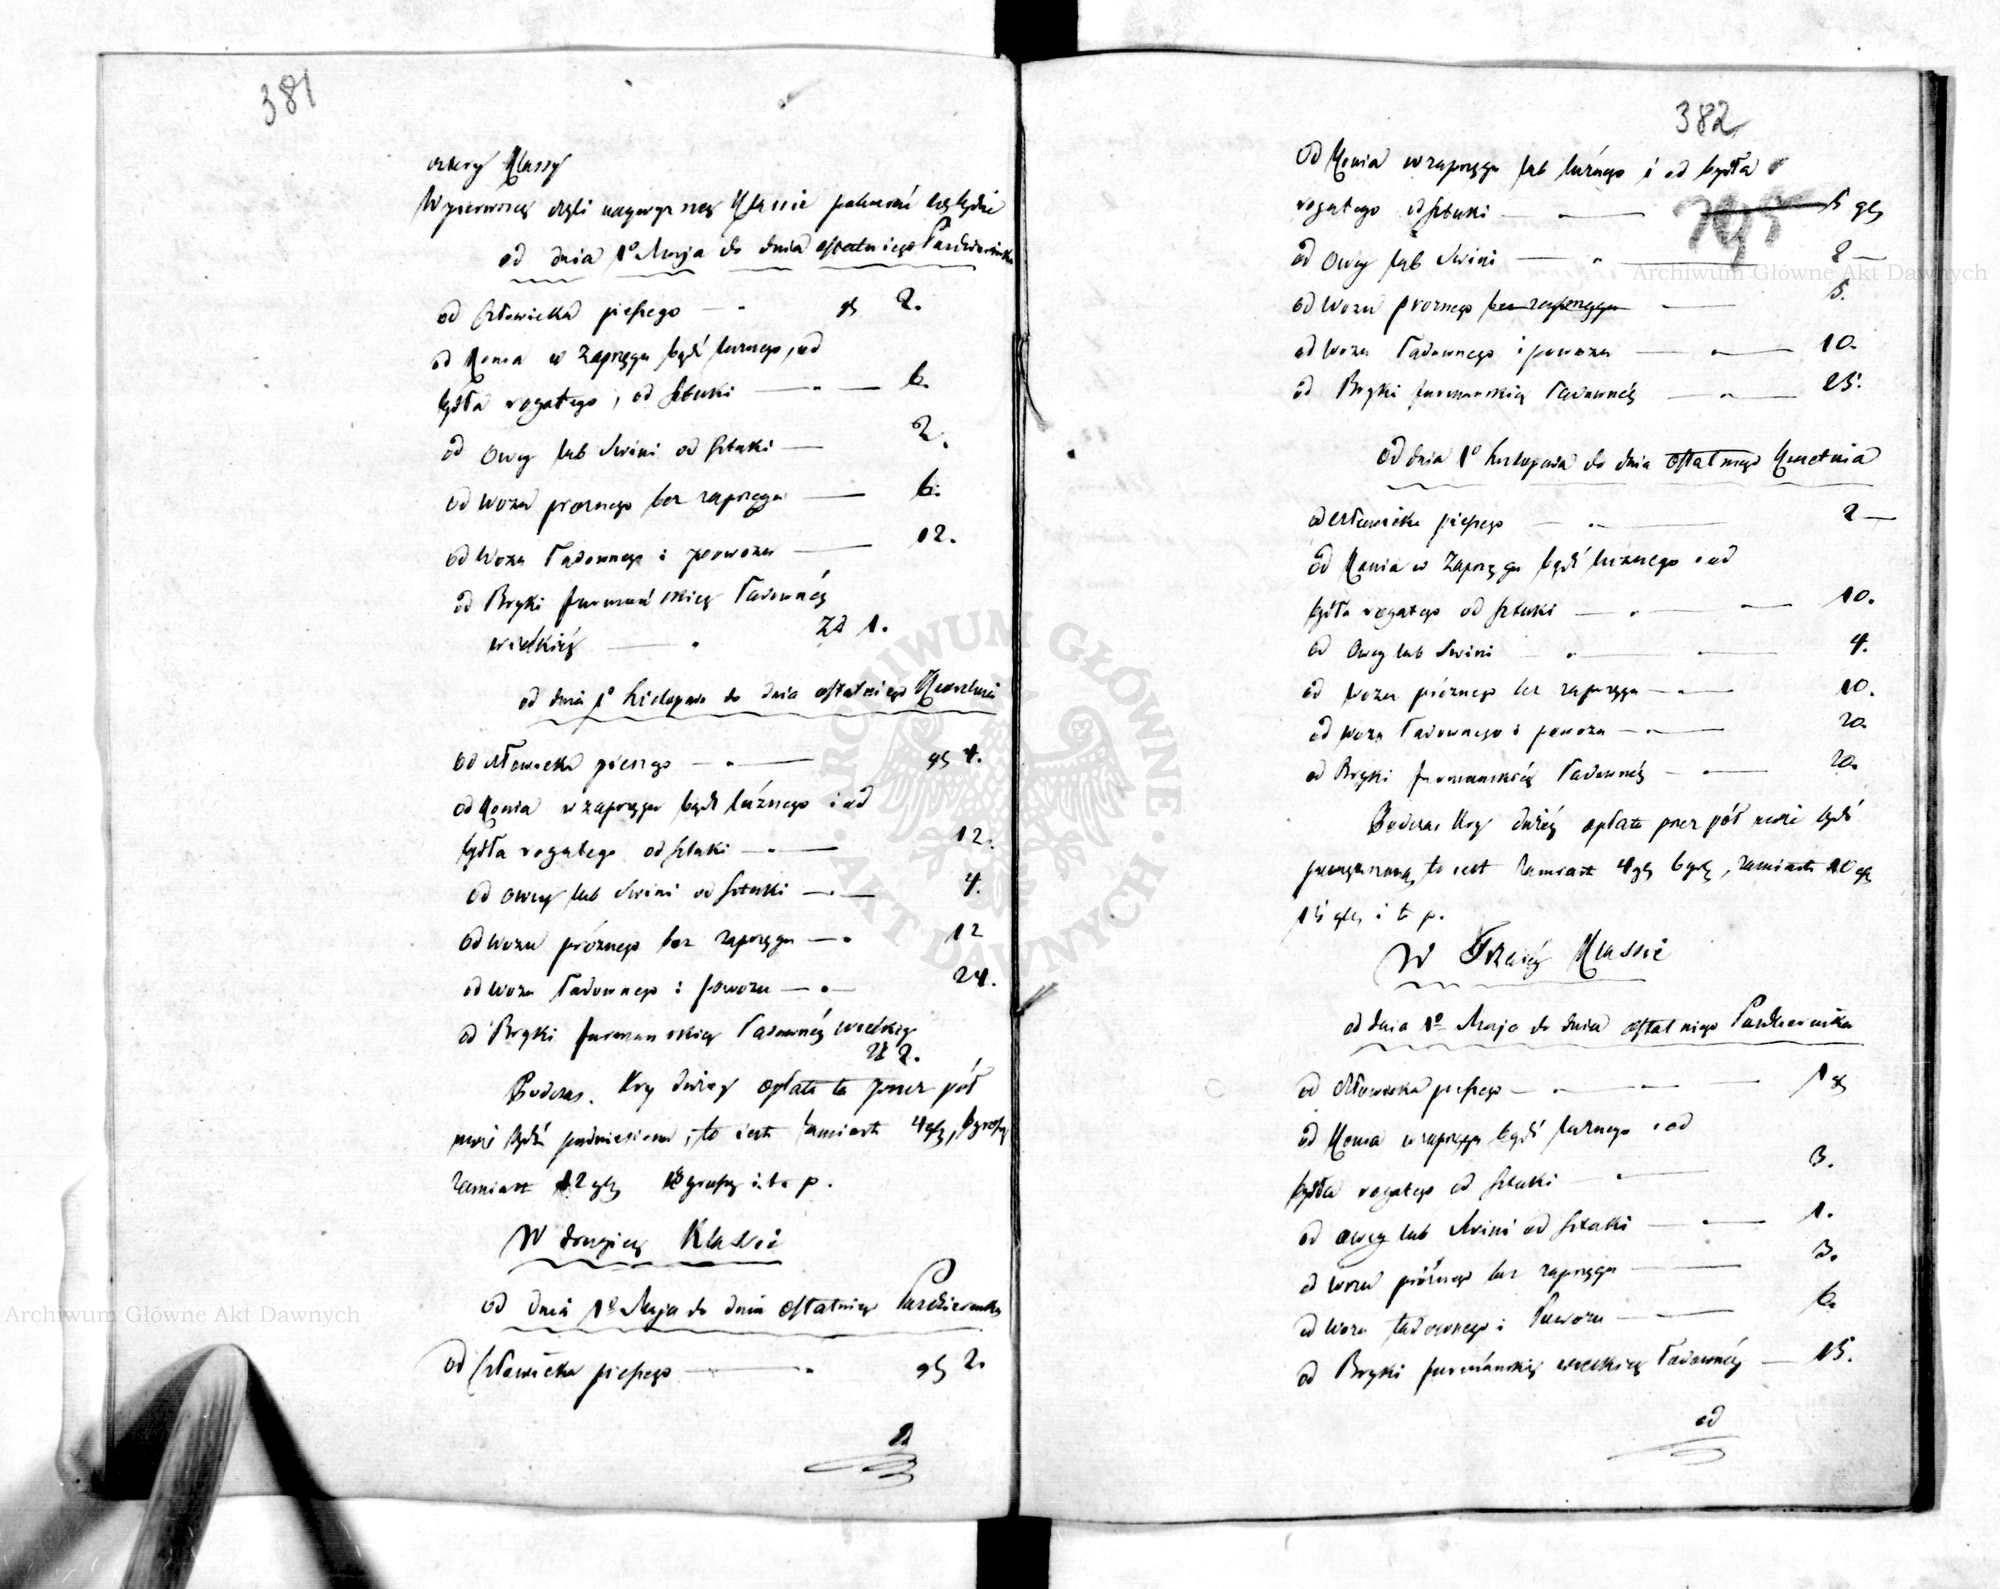 381
cztery Klassy
W pierwszey czyli naywyższey Klassie pobierać się będzie
od dnia 1o Maja do dnia ostatniego Października
od Człowieka pieszego — " gr 2.
od Konia w Zaprzęgu bądź luznego, od
bydła rogatego, od sztuki — " — 6.
od Owcy lub Swini od sztuki — 2.
od Wozu proznego bez zaprzęgu — 6.
od Wozu ładownego i powozu — 12.
od Bryki furmańskiey ładownéy
wielkiéy — " Zł 1.
od dnia 1o Listopada do dnia ostatniego Kwietnia
od człowieka pieszego — " — gr 4.
od Konia w zaprzęgu bądź luźnego i od
bydła rogatego od sztuki — " — 12.
od owcy lub Swini od sztuki — " — 4.
od wozu próżnego bez zaprzęgu — " 12
od wozu ładownego i powozu — " — 24.
od Bryki furmanskiey ładownéy wielkiey
zł 2.
Podczas Kry dużey opłata ta przez pół
może bydź podniesiona, to iest zamiast 4 gr, 6 groszy
zamiast 12 gr 18 groszy i. t. p.
W drugiey Klassie
od dnia 1o Maja do dnia ostatniego Października
od Człowieka pieszego — " gr 2.
od
382
od Konia w zaprzęgu lub luźnego i od bydła
rogatego od sztuki — — 5 gr
795
od Owcy lub Swini — " — 2 —
od Wozu proznego bez zaprzęgu — 5.
od wozu ładownego i powozu — " — 10.
od Bryki furmanskiey ładownéy — " — 25.
Od dnia 1o Listopada do dnia ostatniego Kwietnia
od człowieka pieszego — " — 2 —
od Konia w Zaprzęgu bądź luznego i od
bydła rogatego od sztuki — " — 10.
od Owcy lub Swini — " — 4.
od wozu próznego bez zaprzęgu — " — 10.
od wozu ładownego i powozu — " — 20.
od Bryki furmanskiéy ładownéy — " — 20.
Podczas Kry dużéy opłata przez pół może bydź
to iest zamiast 4 gr 6 gr, zamiast 10 gr
15 gr i t. p.
W Trzeciéy Klassie
od dnia 1o Maja do dnia ostatniego Października
od Człowieka pieszego — " — 1 gr
od Konia w zaprzęgu bądź luznego i od
bydła rogatego od sztuki — " — 3.
od owcy lub Swini od sztuki — " — 1.
od wozu próżnego bez zaprzęgu — 3.
od wozu ładownego i Powozu — 6.
od Bryki furmánskiéy wielkiéy ładownéy — 15.
od
Archiwum Główne Akt Dawnych
Archiwum Główne Akt Dawnych
ARCHIWUM GŁÓWNE AKT DAWNYCH